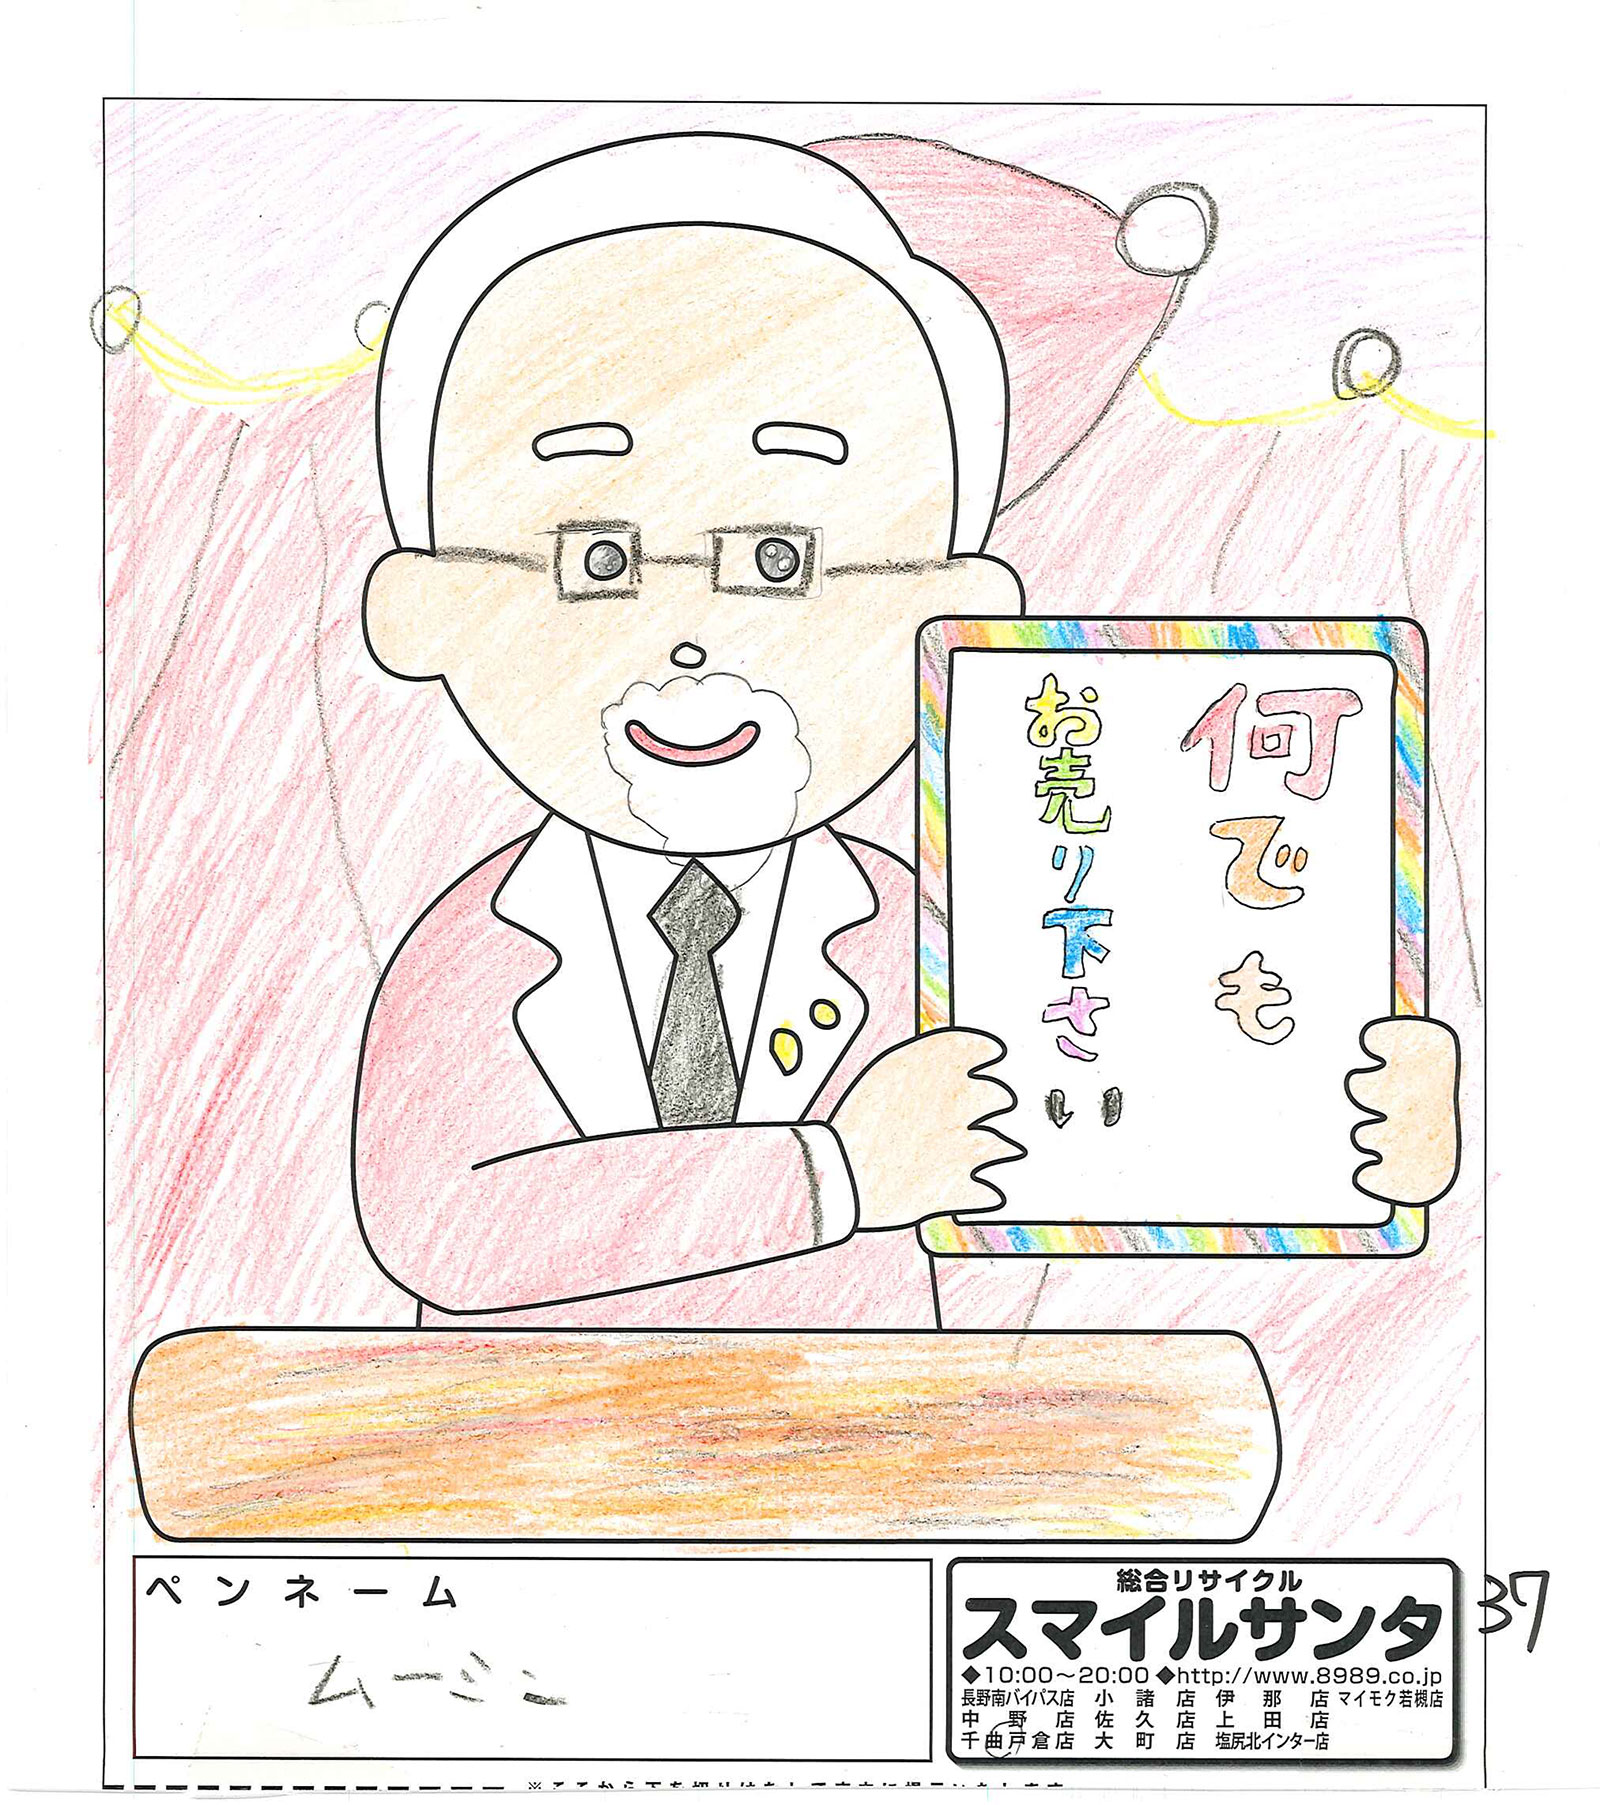 何でも
お売り下さい
ペンネーム
ムーミン
総合リサイクル
スマイルサンタ
37
◆10:00～20:00 ◆http://www.8989.co.jp
長野南バイパス店 小諸店 伊那店 マイモク若槻店
中野店 佐久店 上田店
千曲戸倉店 大町店 塩尻北インター店